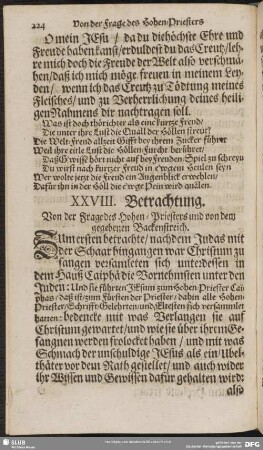 224 Von der Frage des Hohen-Priesters
O mein JEsu / da du die höchste Ehre und
Freude haben kanst / erduldest du das Creutz / leh-
re mich doch die Freude der Welt also verschmä-
hen / daß ich mich möge freuen in meinem Ley-
den / wenn ich das Creutz zu Tödtung meines
Fleisches / und zu Verherrlichung deines heili-
gen Nahmens dir nachtragen soll.
Was ist doch thörichter als eine kurtze Freud /
Die unter ihre Lust die Quall der Höllen streut?
Die Welt-Freud allzeit Gifft bey ihrem Zucker führet
Weil ihre eitle Lust die Höllen-Furcht berühret /
Daß Gewisse hört nicht auf bey Freuden-Spiel zu schreyn
Du wirst nach kurtzer Freud in ewgem Heulen seyn
Wer wolte jetzt die Freud ein Augenblick erwehlen /
Dafür ihn in der Höll die ewge Pein wird quälen.
XXVIII. Betrachtung.
Von der Frage des Hohen-Priesters und von dem
gegebenen Backenstreich.
Zum ersten betrachte / nachdem Judas mit
der Schaar hingangen war Christum zu
fangen versamleten sich unterdessen in
dem Hauß Caiphä die Vornehmsten unter den
Juden: Und sie führten JEsum zum Hohen-Priester Cai-
phas / das ist / zum Fürsten der Priester / dahin alle Hohen-
Priester / Schrifft-Gelehrten / und Eltesten sich versamlet
hatten: bedencke mit was Verlangen sie auf
Christum gewartet / und wie sie über ihrem Ge-
fangnen werden frolocket haben / und mit was
Schmach der unschuldige JEsus als ein Ubel-
thäter vor dem Rath gestellet / und auch wider
ihr Wissen und Gewissen dafür gehalten wird:
also
SLUB
DFG